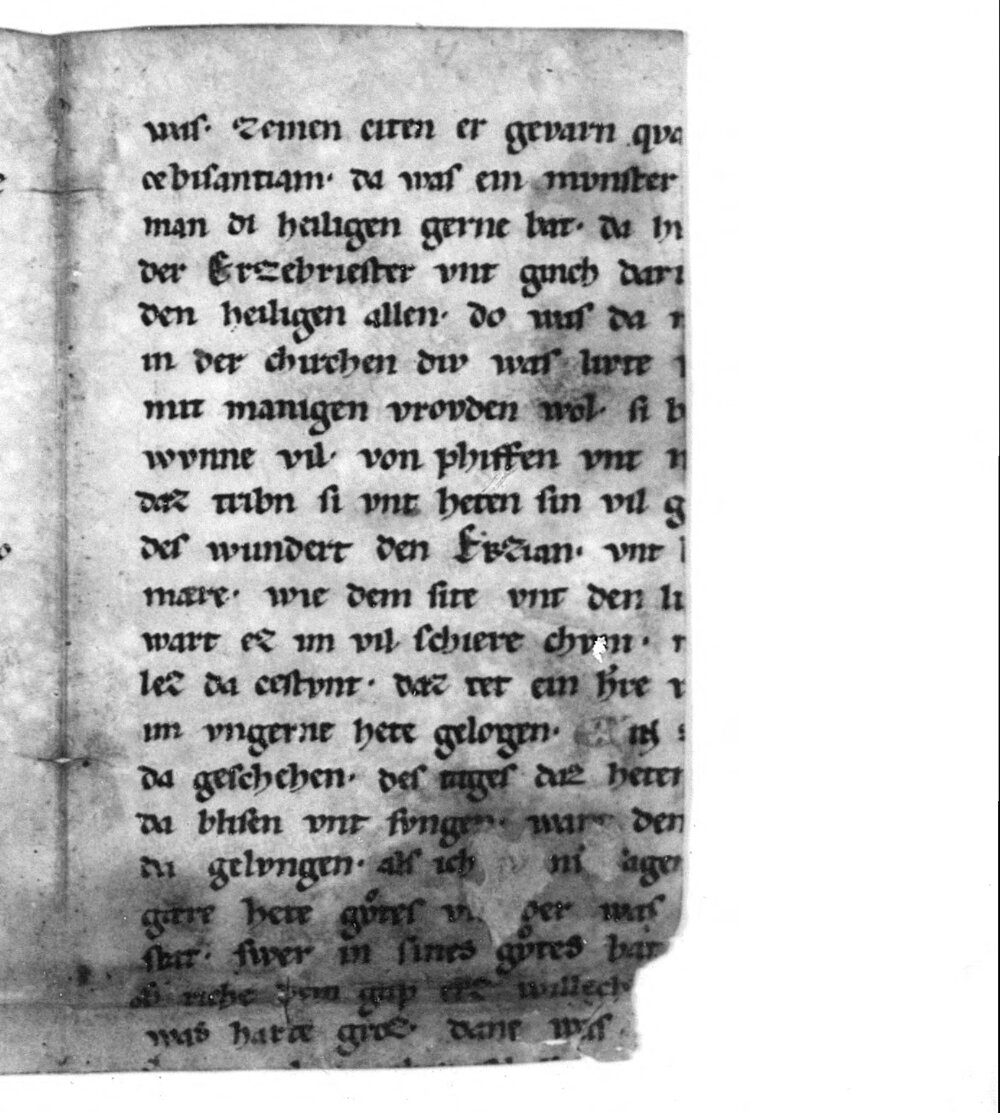 was· zeinen ziten er gevarn qua
ce bisantiam· da was ein mvnster
man di heiligen gerne bat· da hi
der Erzebriester vnt ginch dari
den heiligen allen· do was da
in der chirchen div was lvte
mit manigen vrovden wol· si b
wnne vil· von phiffen vnt
daz tribn si vnt heten sin vil g
des wundert den Erzian· vnt
mære· wie dem site vnt den li
wart ez im vil schiere chvn·
lez da cestvnt· daz tet ein h̾re
im vngerne hete gelogen·
da geschehen· des tages daz heten
da blasen vnt svngen· den
da gelvngen· als ich
gære hete gvͦtes der was
stat· swer in sines gvͦtes bat
riche dem gap erz willech
was harte groz· dane was